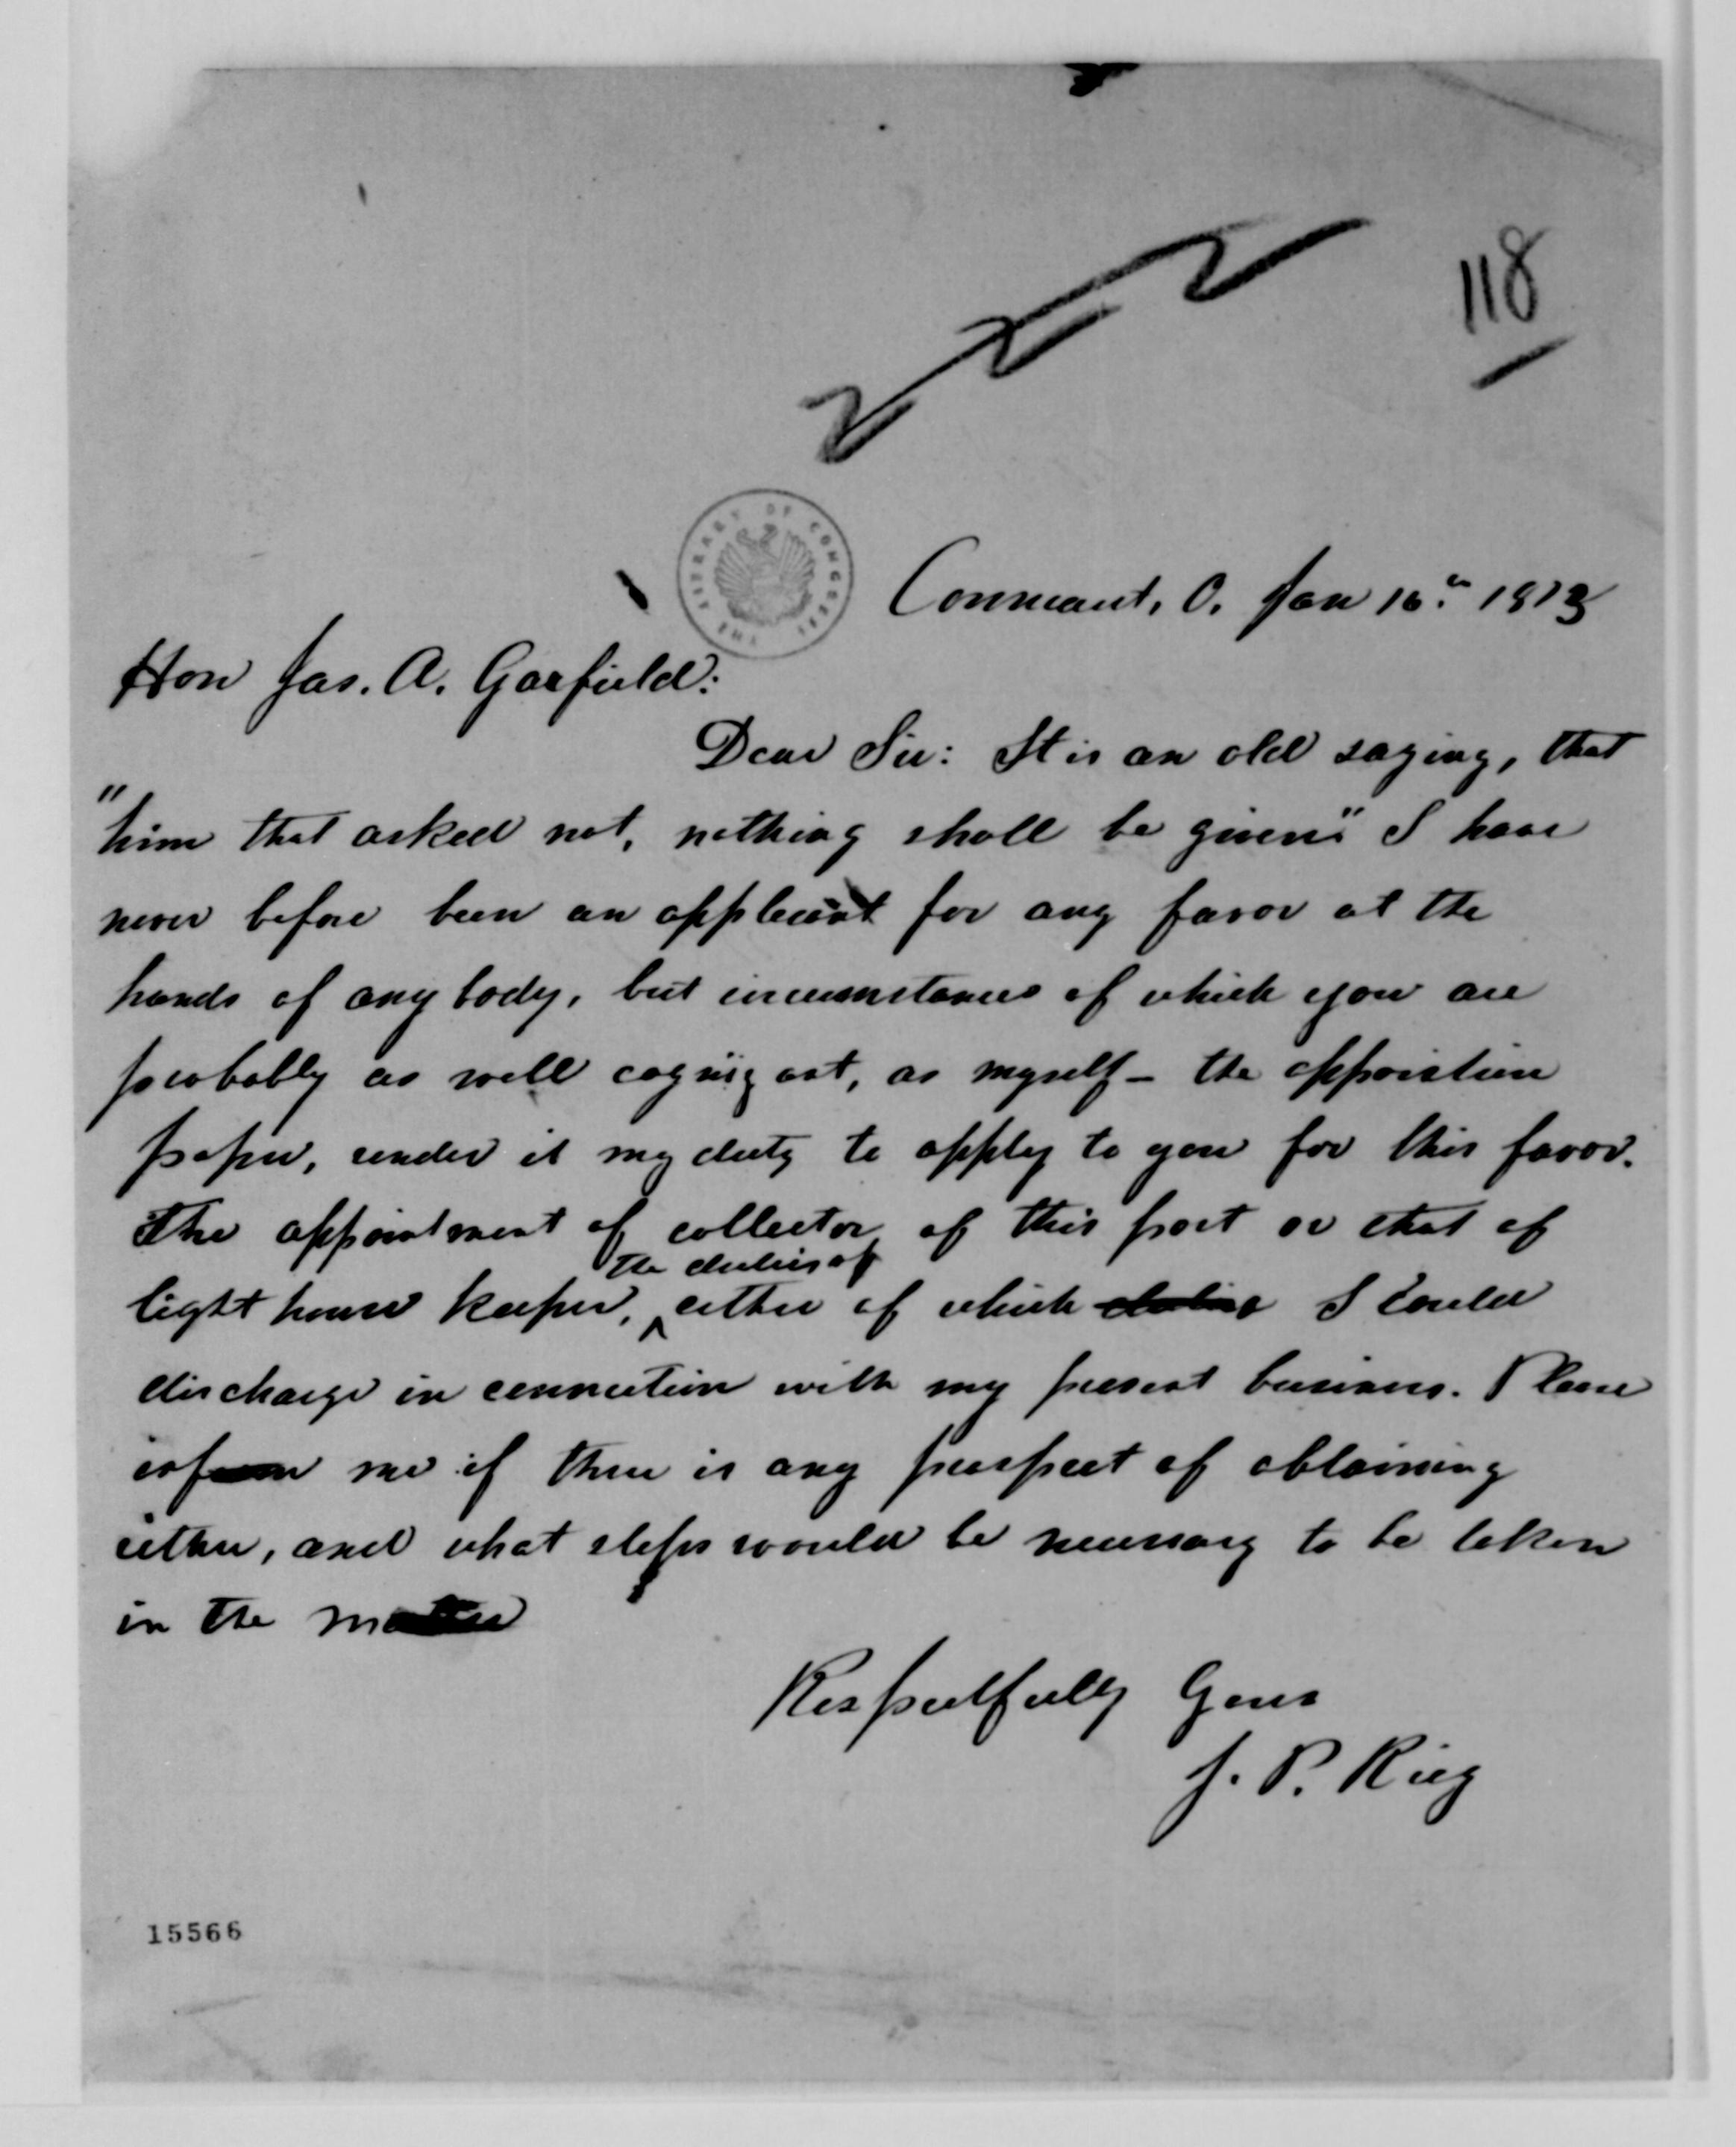 118
THE LIBRARY OF CONGRESS
Conneaut, O. Jan 16th 1873
Hon Jas. A. Garfield:
Dear Sir: It is an old saying, that
"him that asked not, nothing shall be given" I have
never before been an applicant for any favor at the
hands of any body, but circumstances of which you are
probably as well cognizant, as myself - the opposition
paper, render it my duty to apply to you for this favor.
The appointment of collector of this port or that of
the duties of
light house keeper, either of which duties I could
discharge in connection with my present business. Please
inform me if there is any prospect of obtaining
either, and what steps would be necessary to be taken
in the matter
Respectfully Yours
J. P. Rieg
15566